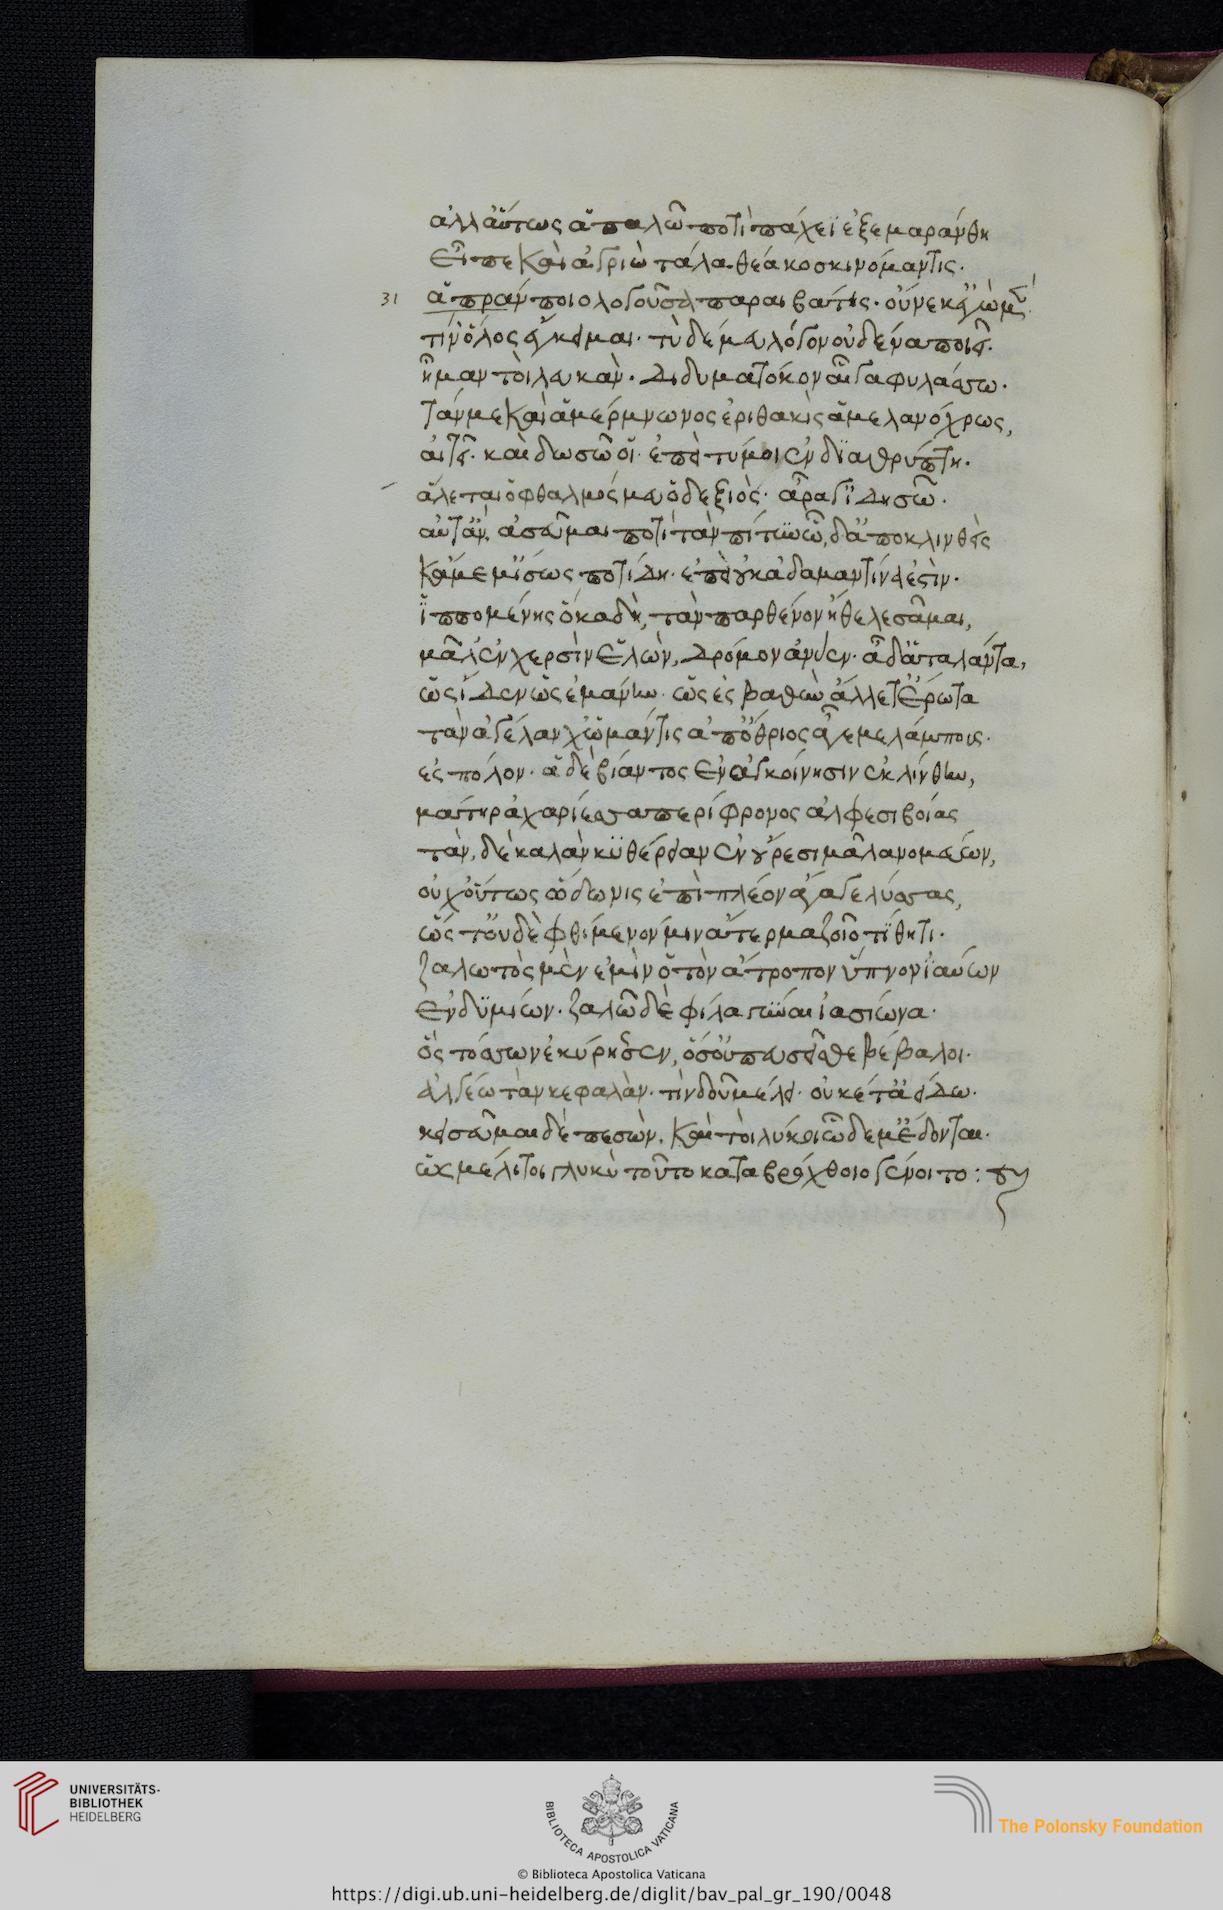 ἀλλ' αὕτως ἁπαλῶ ποτὶ πάχεϊ ἐξεμαράνθη
Εἶπε καὶ ἀγριὼ τάλαθέα κοσκινόμαντις.
31 ἃ πρὰν ποιολογοῦσα παραιβάτις. οὕνεκ' ἐγὼ μὲν
τὶν ὅλος ἔγκειμαι. τὺ δέ μευ λόγον οὐδένα ποιεῖς.
ἦ μάν τοι λευκὰν. διδυματόκον αἶγα φυλάσσω.
τάν με καὶ ἁ μέρμνωνος ἐριθακὶς ἁ μελανόχρως,
αἰτεῖ. καὶ δωσῶ οἱ. ἐπεὶ τύ μοι ἐνδϊαθρύπτη.
ἅλεται ὀφθαλμός μευ ὁ δεξιὸς. ἆρα γ' ἰδησῶ.
αὐτὰν. ἀσεῦμαι ποτὶ τὰν πίτυν ὧδ' ἀποκλινθεὶς
κἀμὲ μ' ἴσως ποτίδη. ἐπεὶ οὐκ ἀδαμαντίνα ἐστὶν.
ἱππομένης ὅκα δὴ, τὰν παρθένον ἤθελε γᾶμαι,
μᾶλ' ἐν χερσὶν ἑλὼν, δρόμον ἄνυεν. ἁ δ' ἀταλάντα,
ὣς ἴδεν ὣς ἐμάνη. ὣς ἐς βαθὺν ἅλλετ' ἔρωτα
τὰν ἀγέλαν χὠ μάντις ἀπ' ὄθριος ἆγε μελάμπους.
ἐς πόλον. ἁ δὲ βίαντος ἐν ἀγκοίνησιν ἐκλίνθη,
μάτηρ ἁ χαρίεσσα περίφρονος ἀλφεσιβοίας
τὰν, δὲ καλὰν κϋθέρειαν ἐν οὔρεσι μᾶλα νομεύων,
οὐχ οὕτως ὥδωνις ἐπὶ πλέον ἄγαγε λύσσας,
ὥς τ' οὐδὲ φθίμενόν μιν ἄτερ μαζοῖο τίθητι.
ζαλωτὸς μὲν ἐμὶν ὁ τὸν ἄτροπον ὕπνον ἰαύων
Ἐνδϋμίων. ζαλῶ δὲ φίλα γύναι ἰασίωνα.
ὃς τόσσων ἐκύρησεν, ὅσ' οὐ πευσεῖσθε βέβαλοι.
ἀλγέω τὰν κεφαλὰν. τὶν δ' οὐ μέλει. οὐκέτ' ἀείδω.
κεισεῦμαι δὲ πεσὼν. καὶ τοὶ λύκοι ὧδε μ' ἔδονται.
ὡς μέλι τοι γλυκὺ τοῦτο κατὰ βρόχθοιο γένοιτο :
UNIVERSITÄTS-
BIBLIOTHEK
HEIDELBERG
BIBLIOTECA APOSTOLICA VATICANA
The Polonsky Foundation
© Biblioteca Apostolica Vaticana
https://digi.ub.uni-heidelberg.de/diglit/bav_pal_gr_190/0048